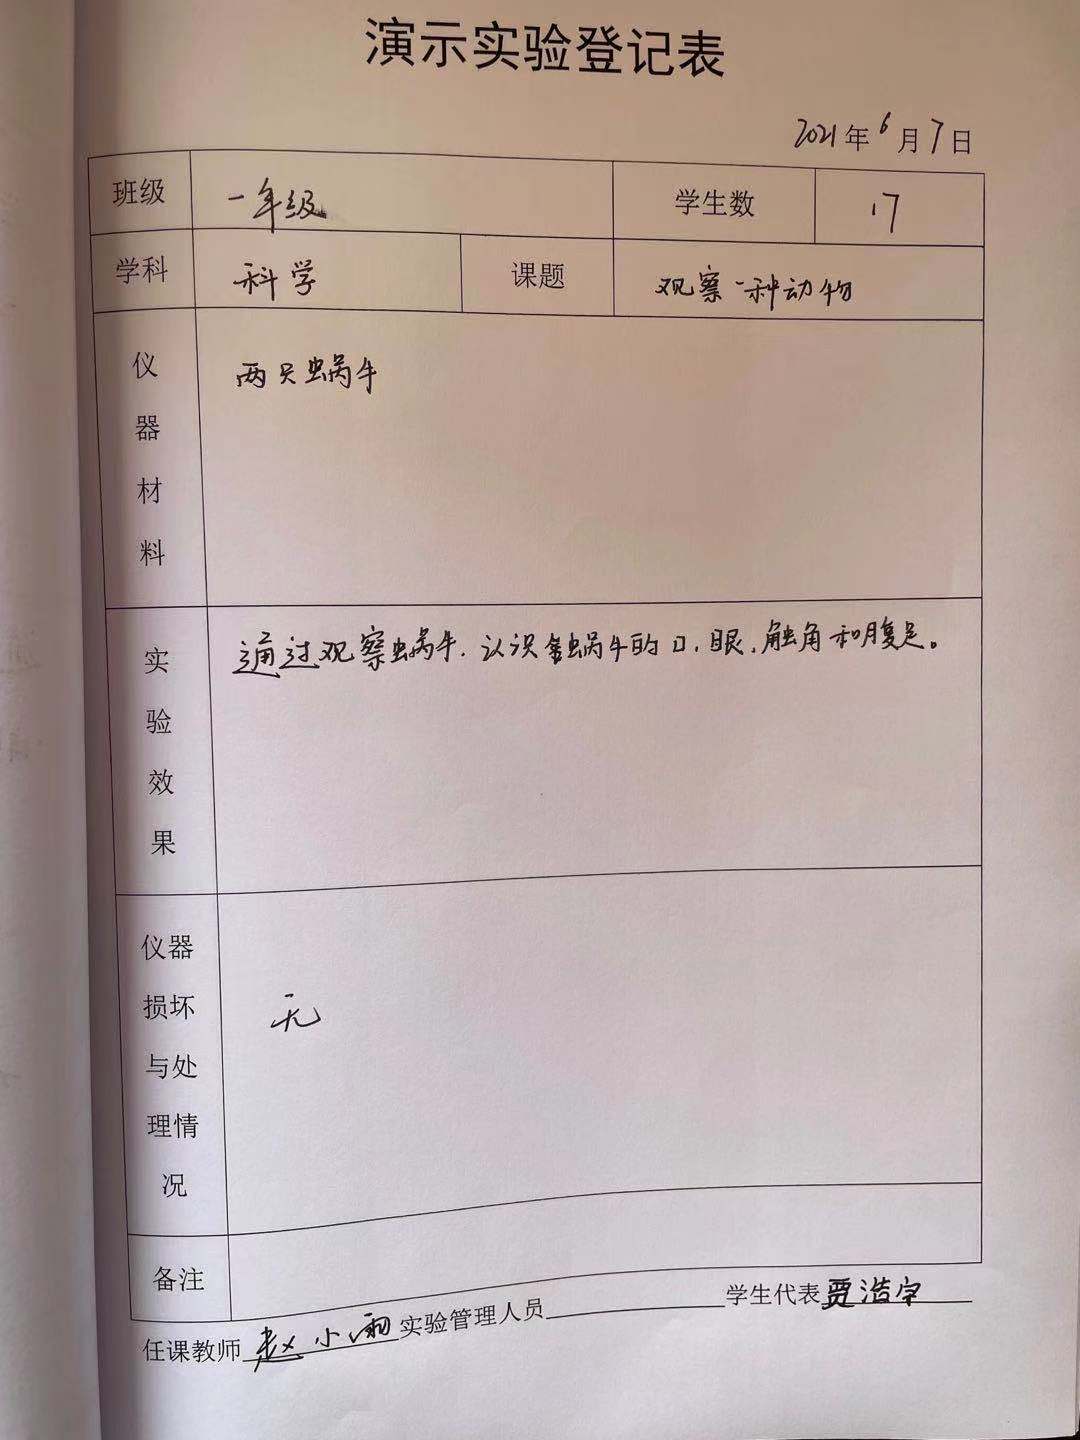 演示实验登记表
2021年6月7日
班级 一年级 学生数 17
学科 科学 课题 观察一种动物
仪器材料 两只蜗牛
实验效果 通过观察蜗牛，认识蜗牛的口、眼、触角和腹足。
仪器损坏与处理情况 无
备注
任课教师 赵小雨 实验管理人员 学生代表 贾浩宇